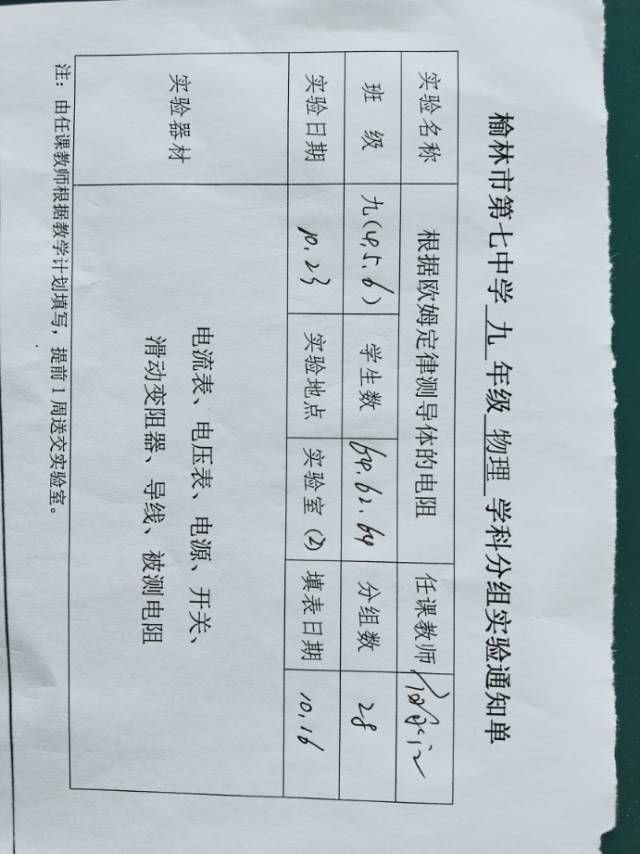 榆林市第七中学 九 年级 物理 学科分组实验通知单
实验名称 根据欧姆定律测导体的电阻 任课教师
班 级 九(4,5,6) 学生数 64.62.64 分组数 28
实验日期 10.23 实验地点 实验室(2) 填表日期 10.16
实验器材 电流表、电压表、电源、开关、
滑动变阻器、导线、被测电阻
注：由任课教师根据教学计划填写，提前1周送交实验室。